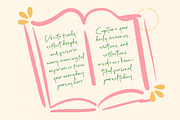 Write freely,
reflect deeply,
and preserve
every meaningful
experience from
your everyday
journey here
Capture your
daily memories,
emotions, and
reflections
inside a beau-
tiful personal
journal today